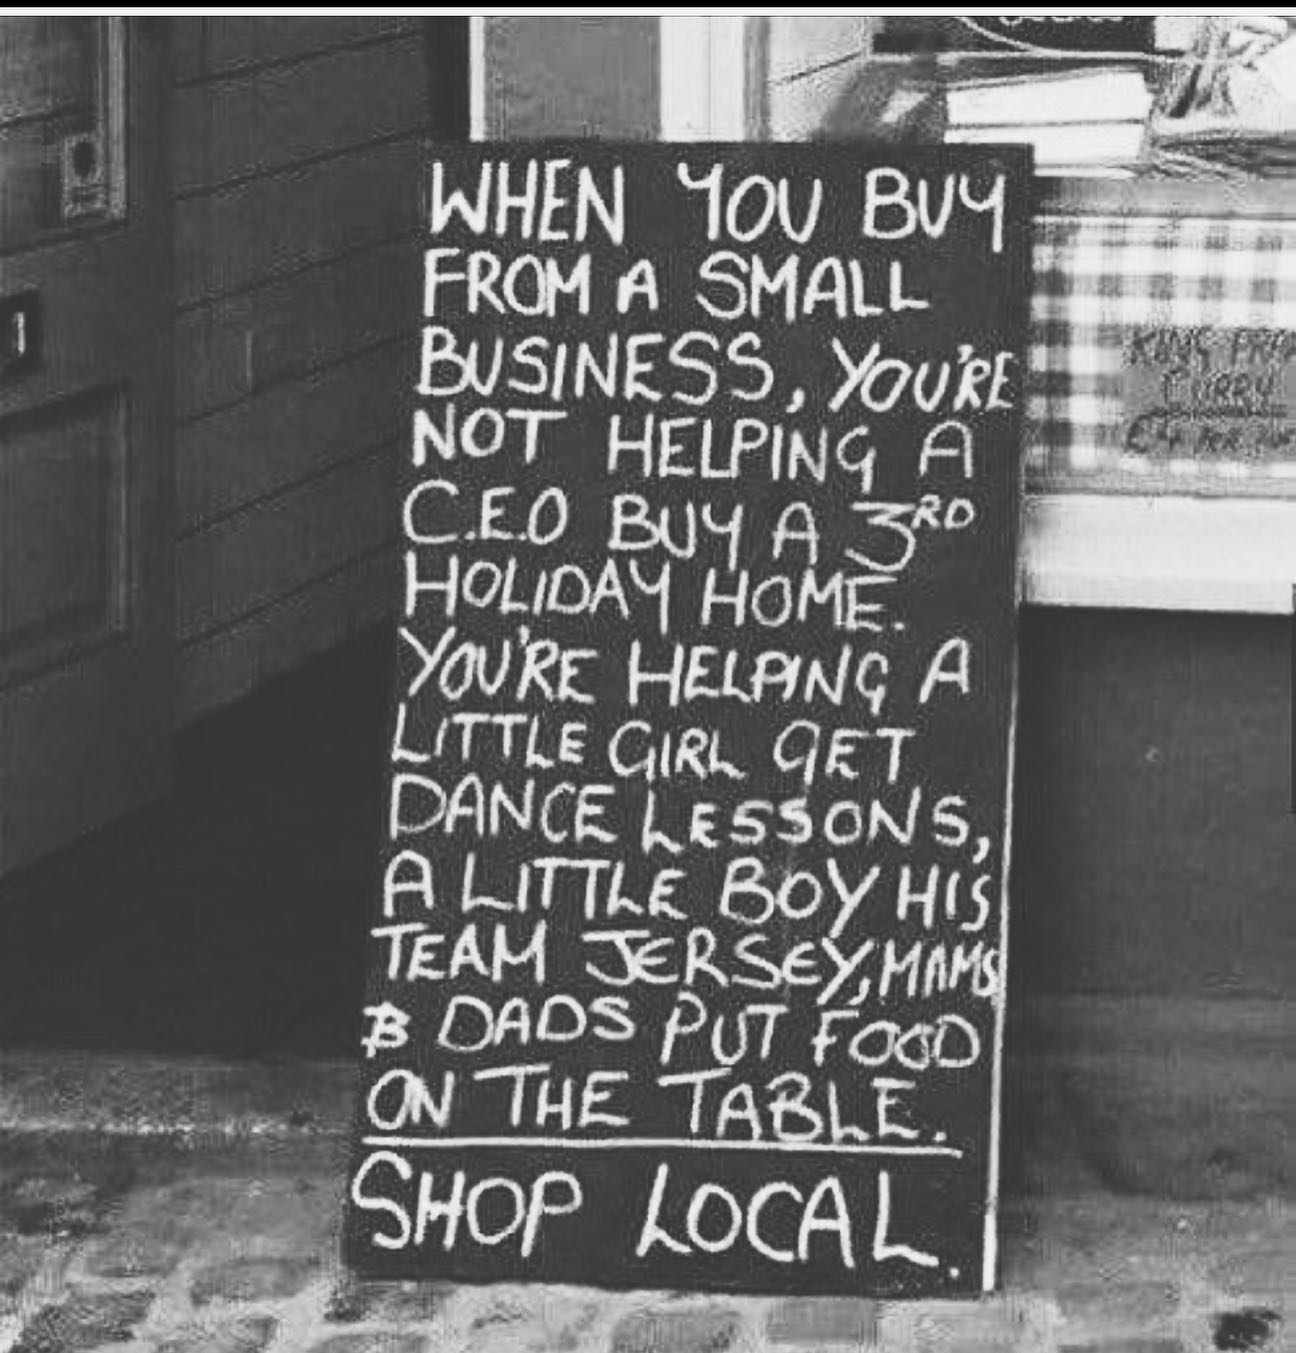 WHEN YOU BUY
FROM A SMALL
BUSINESS, YOU'RE
NOT HELPING A
C.E.O BUY A 3RD
HOLIDAY HOME.
YOU'RE HELPING A
LITTLE GIRL GET
DANCE LESSONS,
A LITTLE BOY HIS
TEAM JERSEY, MAMS
& DADS PUT FOOD
ON THE TABLE.
SHOP LOCAL.
CURRY